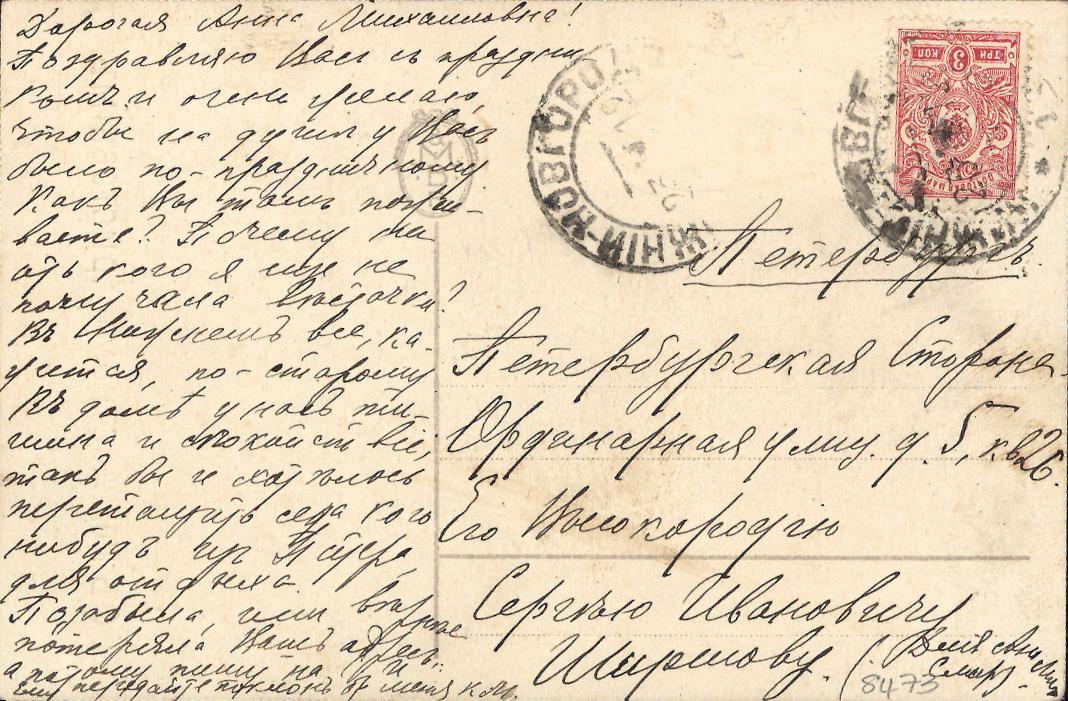 Дорогая Анна Михаиловна!
Поздравляю Вас съ праздни
комъ и очень желаю,
чтобы на душѣ у Васъ
было по-праздничному
Какъ Вы тамъ пожи-
ваете? Почему ни
отъ кого я еще не
получала весточки?
Въ Нижнемъ все, ка-
жется, по-старому
Въ домѣ у насъ ти-
шина и спокойствіе,
такъ бы и хотѣлось
перетащить сюда кого
нибудь изъ Питера,
для отдыха.
Позабыла, или вѣрнѣе
потеряла Вашъ адресъ,
а потому пишу на
ему передайте поклонъ отъ меня
ТРИ 3 КОП
ПОЧТОВАЯ МАРКА
НИЖНІЙ-НОВГОРОД
НИЖНІЙ НОВГ
Петербургъ.
Петербургская Сторона
Ординарная улиц. д. 5, кв 26.
Его Высокородію
Сергѣю Ивановичу
Ширшову.
8473